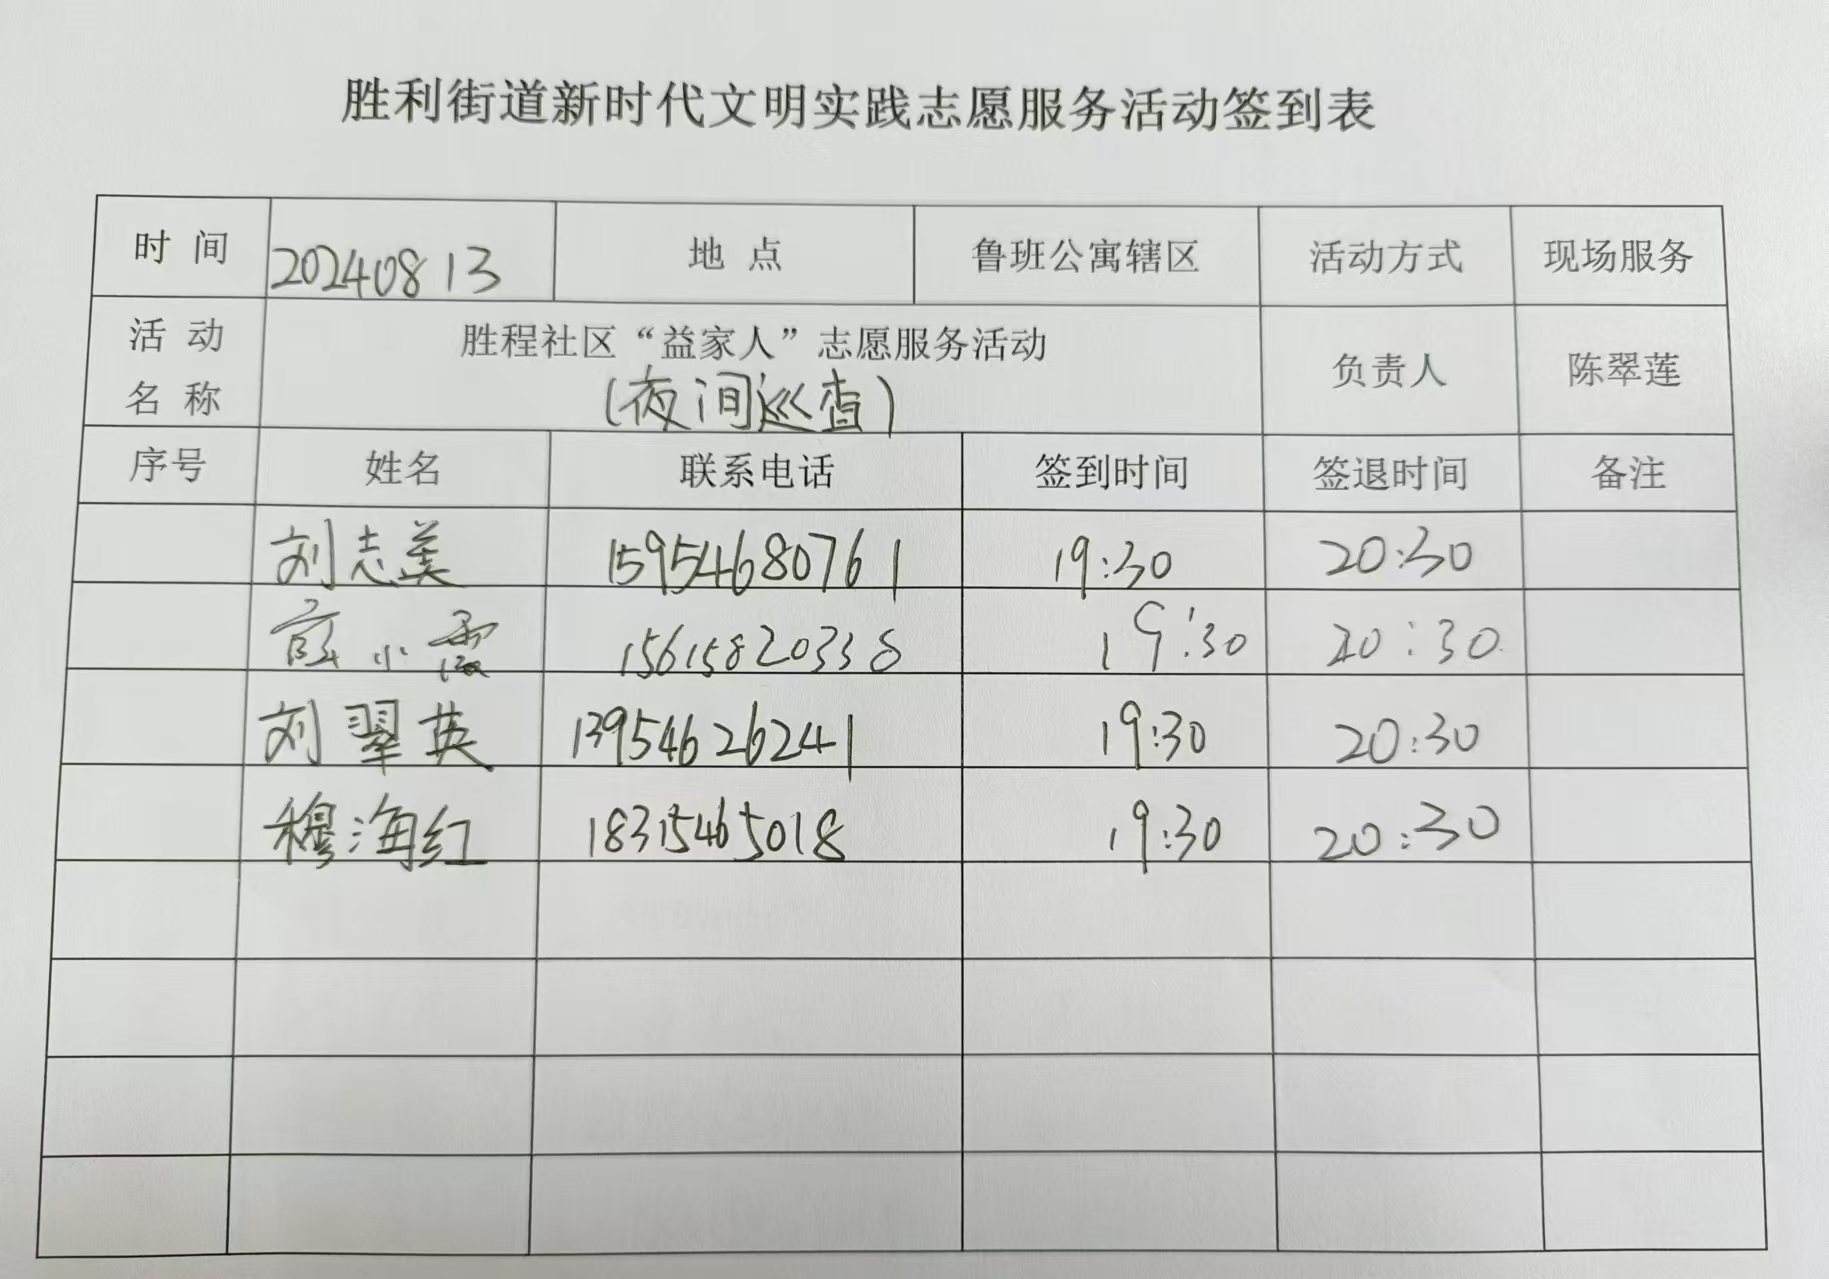 胜利街道新时代文明实践志愿服务活动签到表
时 间 20240813 地 点 鲁班公寓辖区 活动方式 现场服务
活 动 名 称 胜程社区“益家人”志愿服务活动 负责人 陈翠莲
(夜间巡查)
序号 姓名 联系电话 签到时间 签退时间 备注
刘志美 15954680761 19:30 20:30
小霞 15615820338 19:30 20:30
刘翠英 13954626241 19:30 20:30
穆海红 18315465018 19:30 20:30